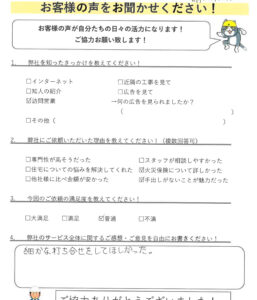 お客様の声をお聞かせください！
お客様の声が自分たちの日々の活力になります！
ご協力お願い致します！
1. 弊社を知ったきっかけを教えてください！
□インターネット □近隣の工事を見て
□知人の紹介 □広告を見て
☑訪問営業 →何の広告を見られましたか？
( )
□その他（ ）
2. 弊社にご依頼いただいた理由を教えてください！（複数回答可）
□専門性が高そうだった □スタッフが相談しやすかった
□住宅についての悩みを解決してくれた ☑火災保険について詳しかった
□他社様に比べ金額が安かった ☑手出しがないことが魅力だった
3. 今回のご依頼の満足度を教えてください！
□大満足 □満足 ☑普通 □不満
4. 弊社のサービス全体に関するご感想・ご意見を自由にお書きください！
細かな打ち合せをしてほしかった。
ご協力ありがとうございました！